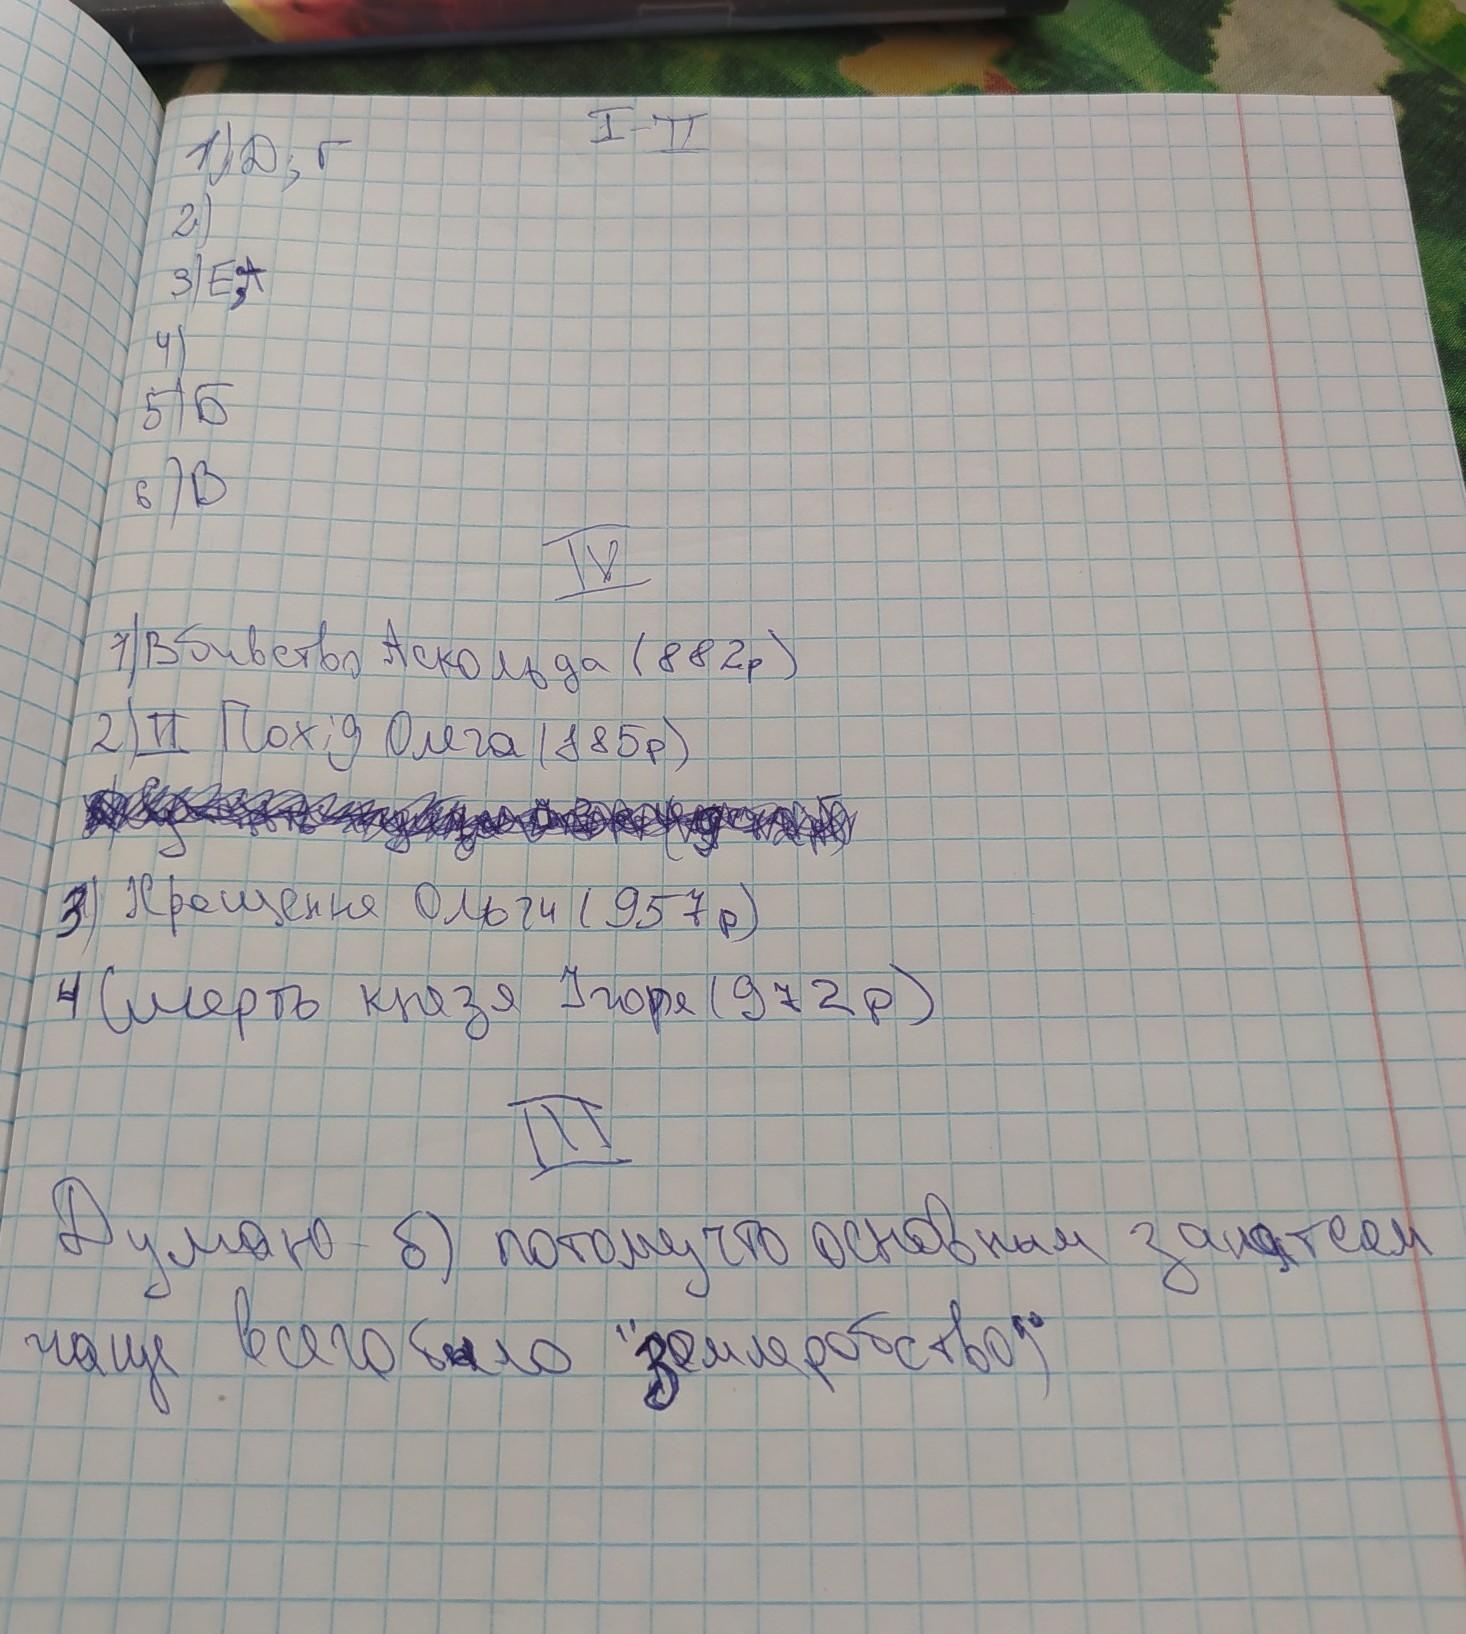 I-II
1) Д; Г
2)
3) Е; А
4)
5) Б
6) В
IV
1) Вбивство Аскольда (882р)
2) II Похід Олега (885р)
3) Хрещення Ольги (957р)
4 Смерть князя Ігоря (972р)
III
Думаю - б) потому что основным занятеем
чаще всего было "землеробство"